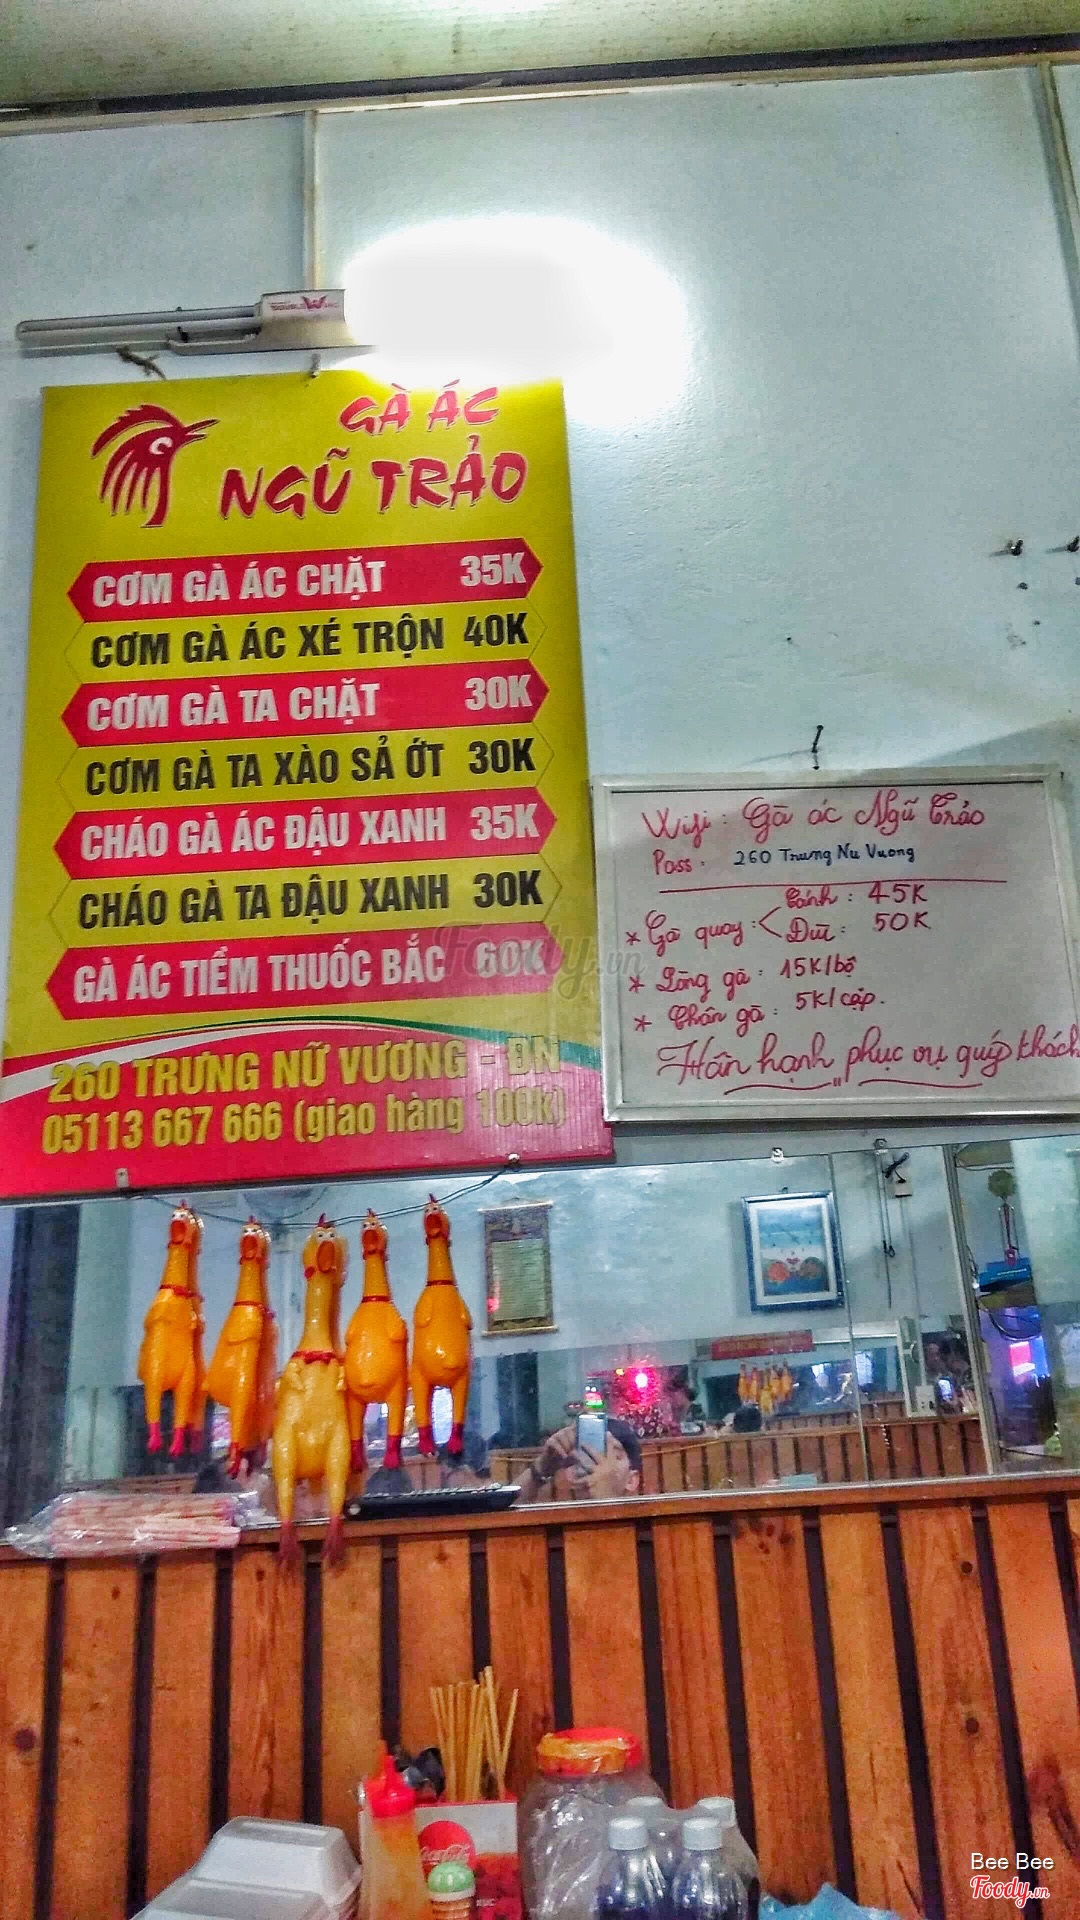 GÀ ÁC
NGŨ TRẢO
CƠM GÀ ÁC CHẶT 35K
CƠM GÀ ÁC XÉ TRỘN 40K
CƠM GÀ TA CHẶT 30K
CƠM GÀ TA XÀO SẢ ỚT 30K
CHÁO GÀ ÁC ĐẬU XANH 35K
CHÁO GÀ TA ĐẬU XANH 30K
GÀ ÁC TIỀM THUỐC BẮC 60K
260 TRƯNG NỮ VƯƠNG - ĐN
05113 667 666 (giao hàng 100k)
Wifi: Gà ác Ngũ Trảo
Pass: 260 Trung Nu Vuong
* Gà quay: < Cánh: 45K
Đùi: 50K
* Lòng gà: 15K/bộ
* Chân gà: 5K/cặp.
Hân hạnh phục vụ quý khách
Foody.vn
Coca-Cola
Bee Bee
Foody.vn